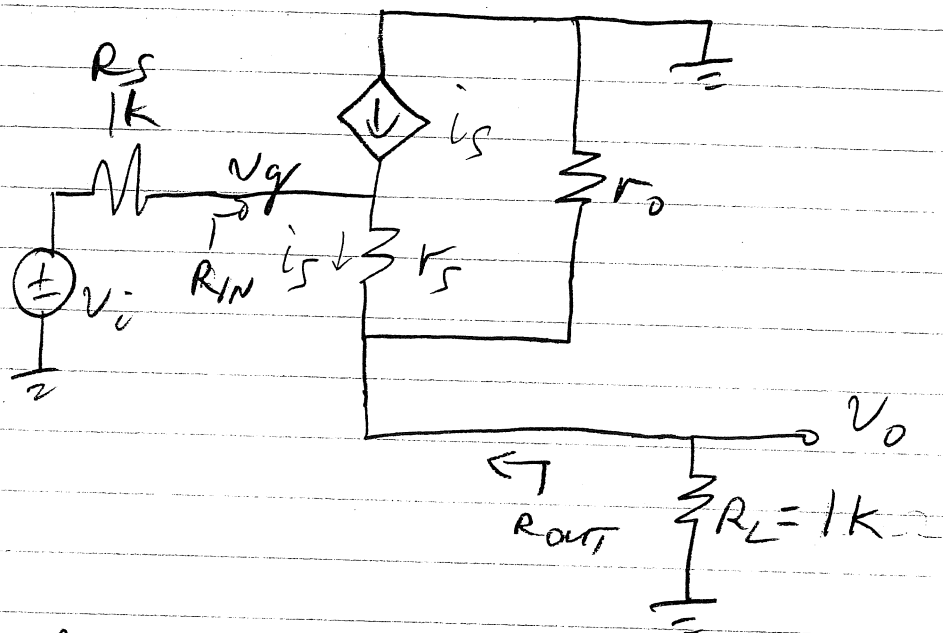 RS
1K
is
vg
ro
RIN
is ↓
rs
+
vi
vo
ROUT
RL = 1K